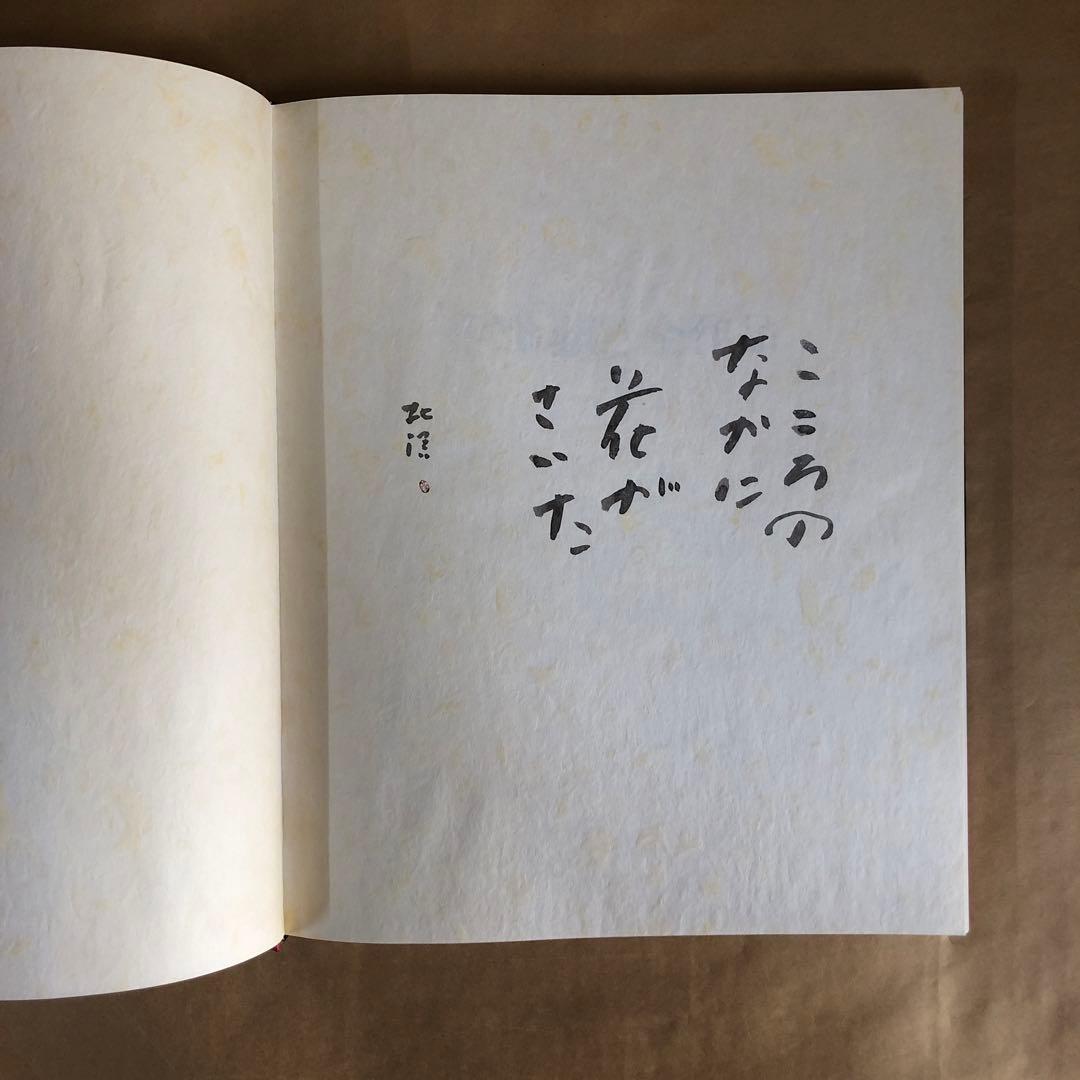 こころの
なかに
花が
さいた